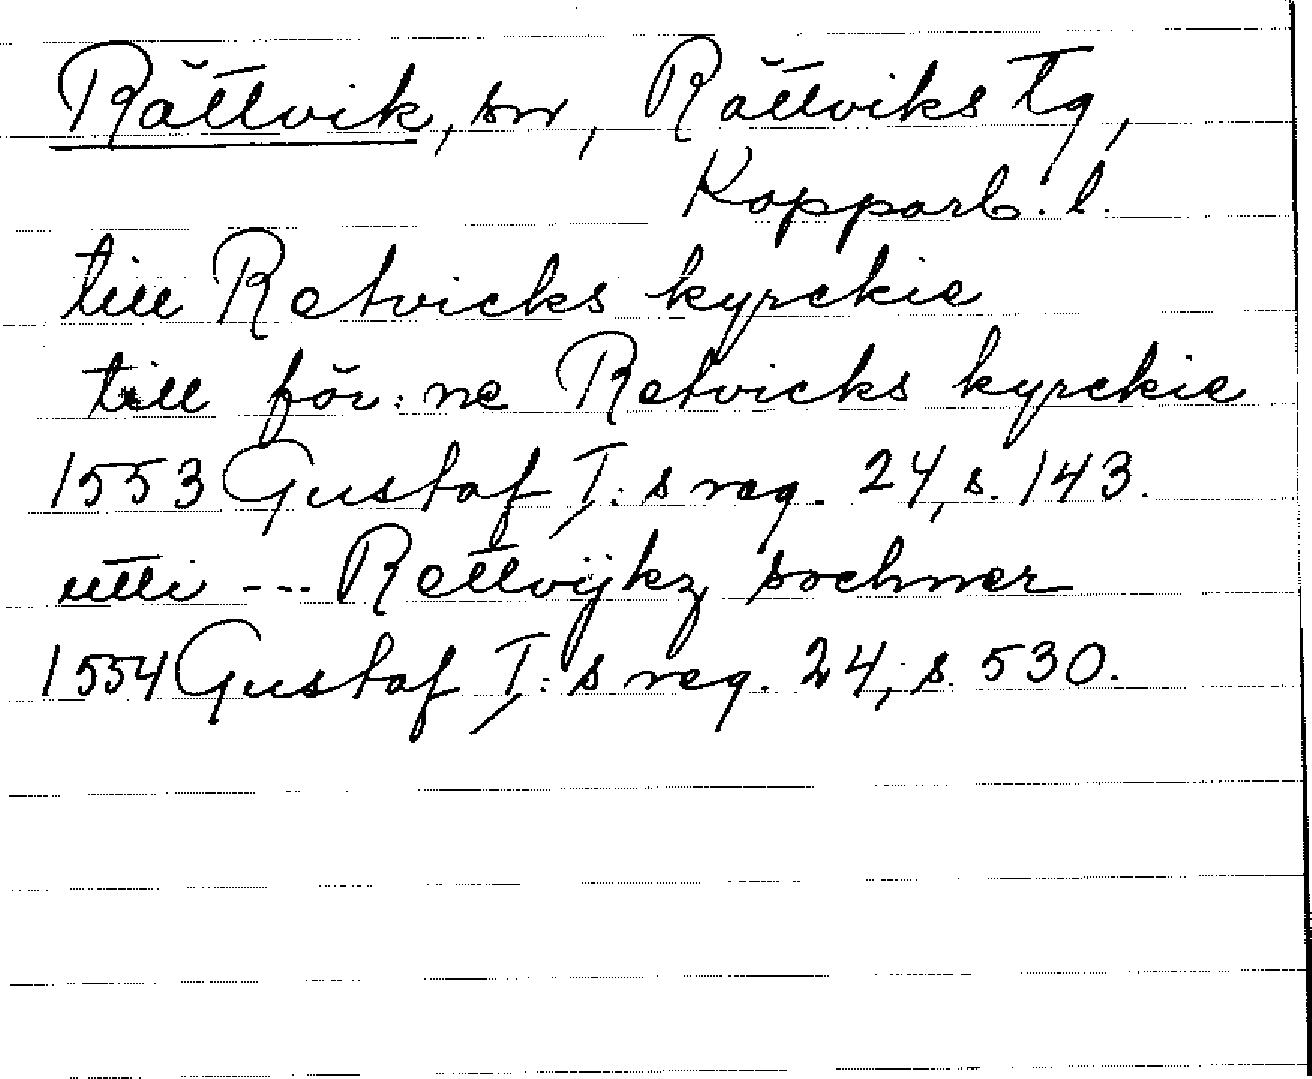 Rättvik, sn, Rättviks tg,
Kopparb. l.
till Retvicks kyrckie
till för:ne Retvicks kyrckie
1553 Gustaf I:s reg. 24, s. 143.
utti --- Rettvijkz sochner
1554 Gustaf I:s reg. 24, s. 530.